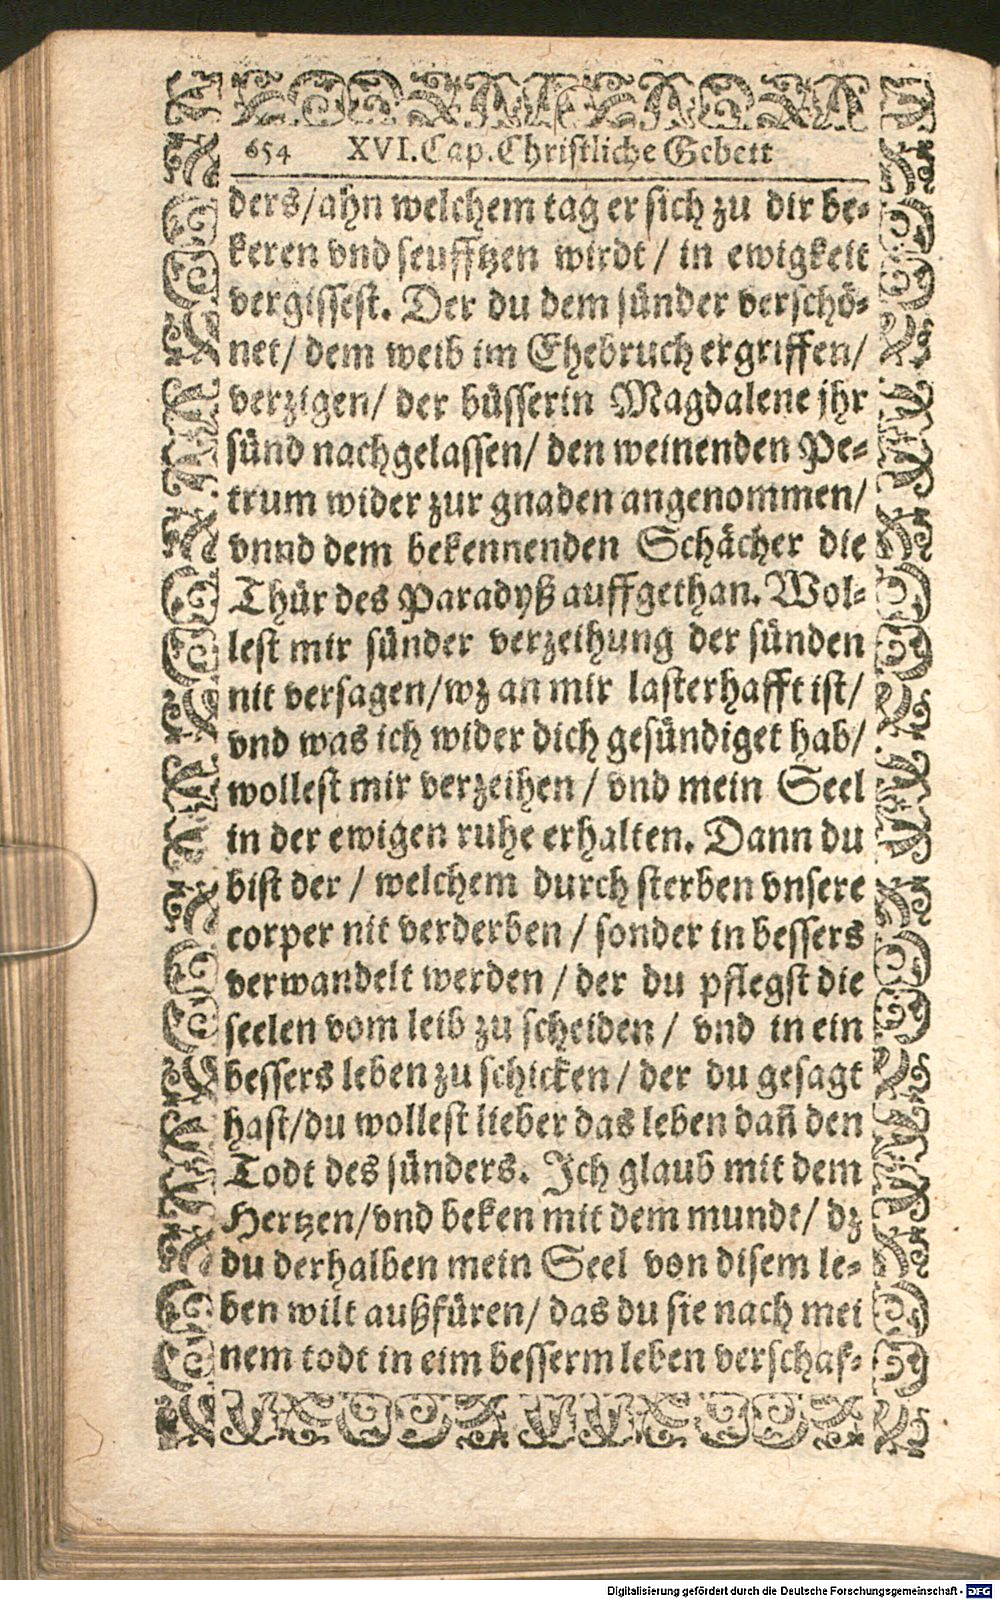 654 XVI. Cap. Christliche Gebett
ders/ahn welchem tag er sich zu dir be-
keren vnd seufftzen wirdt / in ewigkeit
vergissest. Der du dem sünder verschö-
net/ dem weib im Ehebruch ergriffen/
verzigen/ der büsserin Magdalene jhr
sünd nachgelassen/ den weinenden Pe-
trum wider zur gnaden angenommen/
vnnd dem bekennenden Schächer die
Thür des Paradyß auffgethan. Wol-
lest mir sünder verzeihung der sünden
nit versagen/wz an mir lasterhafft ist/
vnd was ich wider dich gesündiget hab/
wollest mir verzeihen / vnd mein Seel
in der ewigen ruhe erhalten. Dann du
bist der / welchem durch sterben vnsere
corper nit verderben / sonder in bessers
verwandelt werden / der du pflegst die
seelen vom leib zu scheiden / vnd in ein
bessers leben zu schicken / der du gesagt
hast/du wollest lieber das leben dañ den
Todt des sünders. Ich glaub mit dem
Hertzen/vnd beken mit dem mundt/ dz
du derhalben mein Seel von disem le-
ben wilt außfüren/ das du sie nach mei
nem todt in eim besserm leben verschaf-
Digitalisierung gefördert durch die Deutsche Forschungsgemeinschaft - DFG